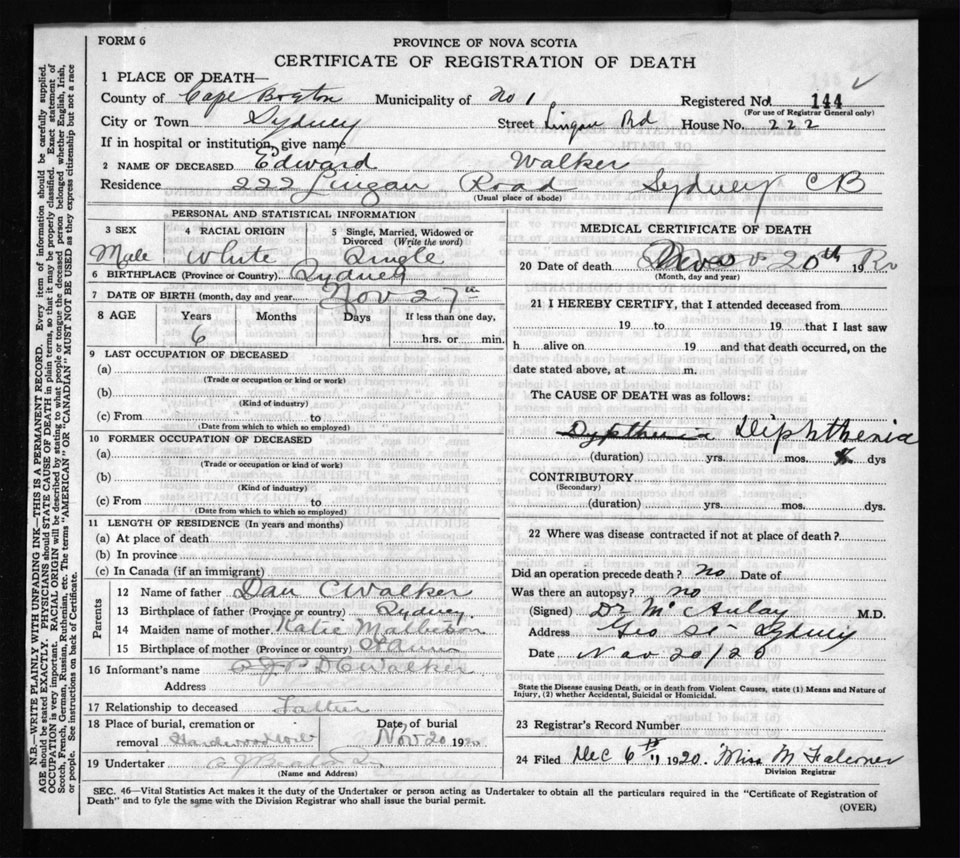 FORM 6
PROVINCE OF NOVA SCOTIA
CERTIFICATE OF REGISTRATION OF DEATH
1 PLACE OF DEATH—
County of Cape Breton Municipality of No 1 Registered No. 144
(For use of Registrar General only)
City or Town Sydney Street Lingan Rd House No. 222
If in hospital or institution, give name
2 NAME OF DECEASED Edward Walker
Residence 222 Lingan Road Sydney CB
(Usual place of abode)
PERSONAL AND STATISTICAL INFORMATION
3 SEX 4 RACIAL ORIGIN 5 Single, Married, Widowed or Divorced (Write the word)
Male White Single
6 BIRTHPLACE (Province or Country) Sydney
7 DATE OF BIRTH (month, day and year Nov 27th
8 AGE Years Months Days If less than one day,
6 hrs. or min.
9 LAST OCCUPATION OF DECEASED
(a)
(Trade or occupation or kind or work)
(b)
(Kind of industry)
(c) From to
(Date from which to which so employed)
10 FORMER OCCUPATION OF DECEASED
(a)
(Trade or occupation or kind of work)
(b)
(Kind of industry)
(c) From to
(Date from which to which so employed)
11 LENGTH OF RESIDENCE (In years and months)
(a) At place of death
(b) In province
(c) In Canada (if an immigrant)
Parents
12 Name of father Dan C Walker
13 Birthplace of father (Province or country) Sydney
14 Maiden name of mother Katie
15 Birthplace of mother (Province or country)
16 Informant's name D C Walker
Address
17 Relationship to deceased Father
18 Place of burial, cremation or removal Date of burial
Nov 20 1920
19 Undertaker
(Name and Address)
MEDICAL CERTIFICATE OF DEATH
20 Date of death 20th 19
(Month, day and year)
21 I HEREBY CERTIFY, that I attended deceased from
19 to 19 that I last saw
h alive on 19 and that death occurred, on the
date stated above, at m.
The CAUSE OF DEATH was as follows:
Dyptheria Diphtheria
(duration) yrs. mos. dys
CONTRIBUTORY
(Secondary)
(duration) yrs. mos. dys.
22 Where was disease contracted if not at place of death?
Did an operation precede death? no Date of
Was there an autopsy? no
(Signed) Dr McAulay M.D.
Address Geo St Sydney
Date Nov 20/20
State the Disease causing Death, or in death from Violent Causes, state (1) Means and Nature of
Injury, (2) whether Accidental, Suicidal or Homicidal.
23 Registrar's Record Number
24 Filed Dec 6th 1920 Miss M Falconer
Division Registrar
SEC. 46—Vital Statistics Act makes it the duty of the Undertaker or person acting as Undertaker to obtain all the particulars required in the "Certificate of Registration of
Death" and to fyle the same with the Division Registrar who shall issue the burial permit.
(OVER)
N.B.—WRITE PLAINLY WITH UNFADING INK—THIS IS A PERMANENT RECORD. Every item of information should be carefully supplied.
AGE should be stated EXACTLY. PHYSICIANS should STATE CAUSE OF DEATH in plain terms, so that it may be properly classified. Exact statement of
OCCUPATION is very important. RACIAL ORIGIN will be described by stating to what people or tongue the deceased person belonged whether English, Irish,
Scotch, French, German, Russian, Ruthenian, etc. The terms "AMERICAN" OR "CANADIAN" MUST NOT BE USED as they express citizenship but not a race
or people. See instructions on back of Certificate.